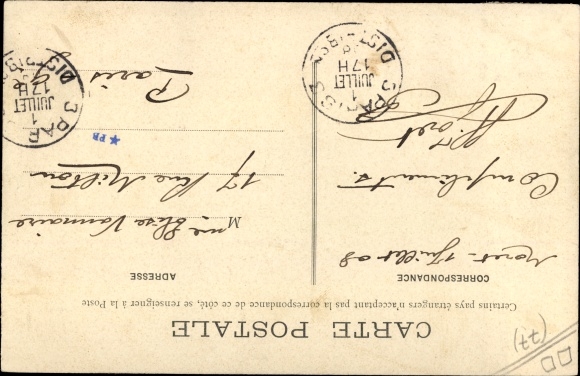 CARTE POSTALE
Certains pays étrangers n'acceptant pas la correspondance de ce côté, se renseigner à la Poste
CORRESPONDANCE
Moret-1 Juillet 08
Compliments.
ADRESSE
Mme Elise Vannaire
17 Rue Milton
Paris
PARIS 3
1
JUILLET
17H
DISTRIBON
3 PAR
1
JUILLET
17H
DIS
PB
(77)